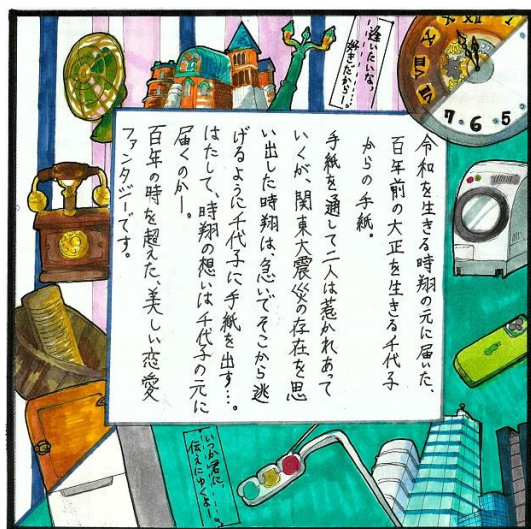 逢いたいなっ
好きだから―。
7・6・5
令和を生きる時翔の元に届いた、
百年前の大正を生きる千代子
からの手紙。
手紙を通して二人は惹かれあって
いくが、関東大震災の存在を思
い出した時翔は、急いでそこから逃
げるように千代子に手紙を出す…。
はたして、時翔の想いは千代子の元に
届くのかー。
百年の時を超えた、美しい恋愛
ファンタジーです。
いつか君に、
伝えにゆくよ―。